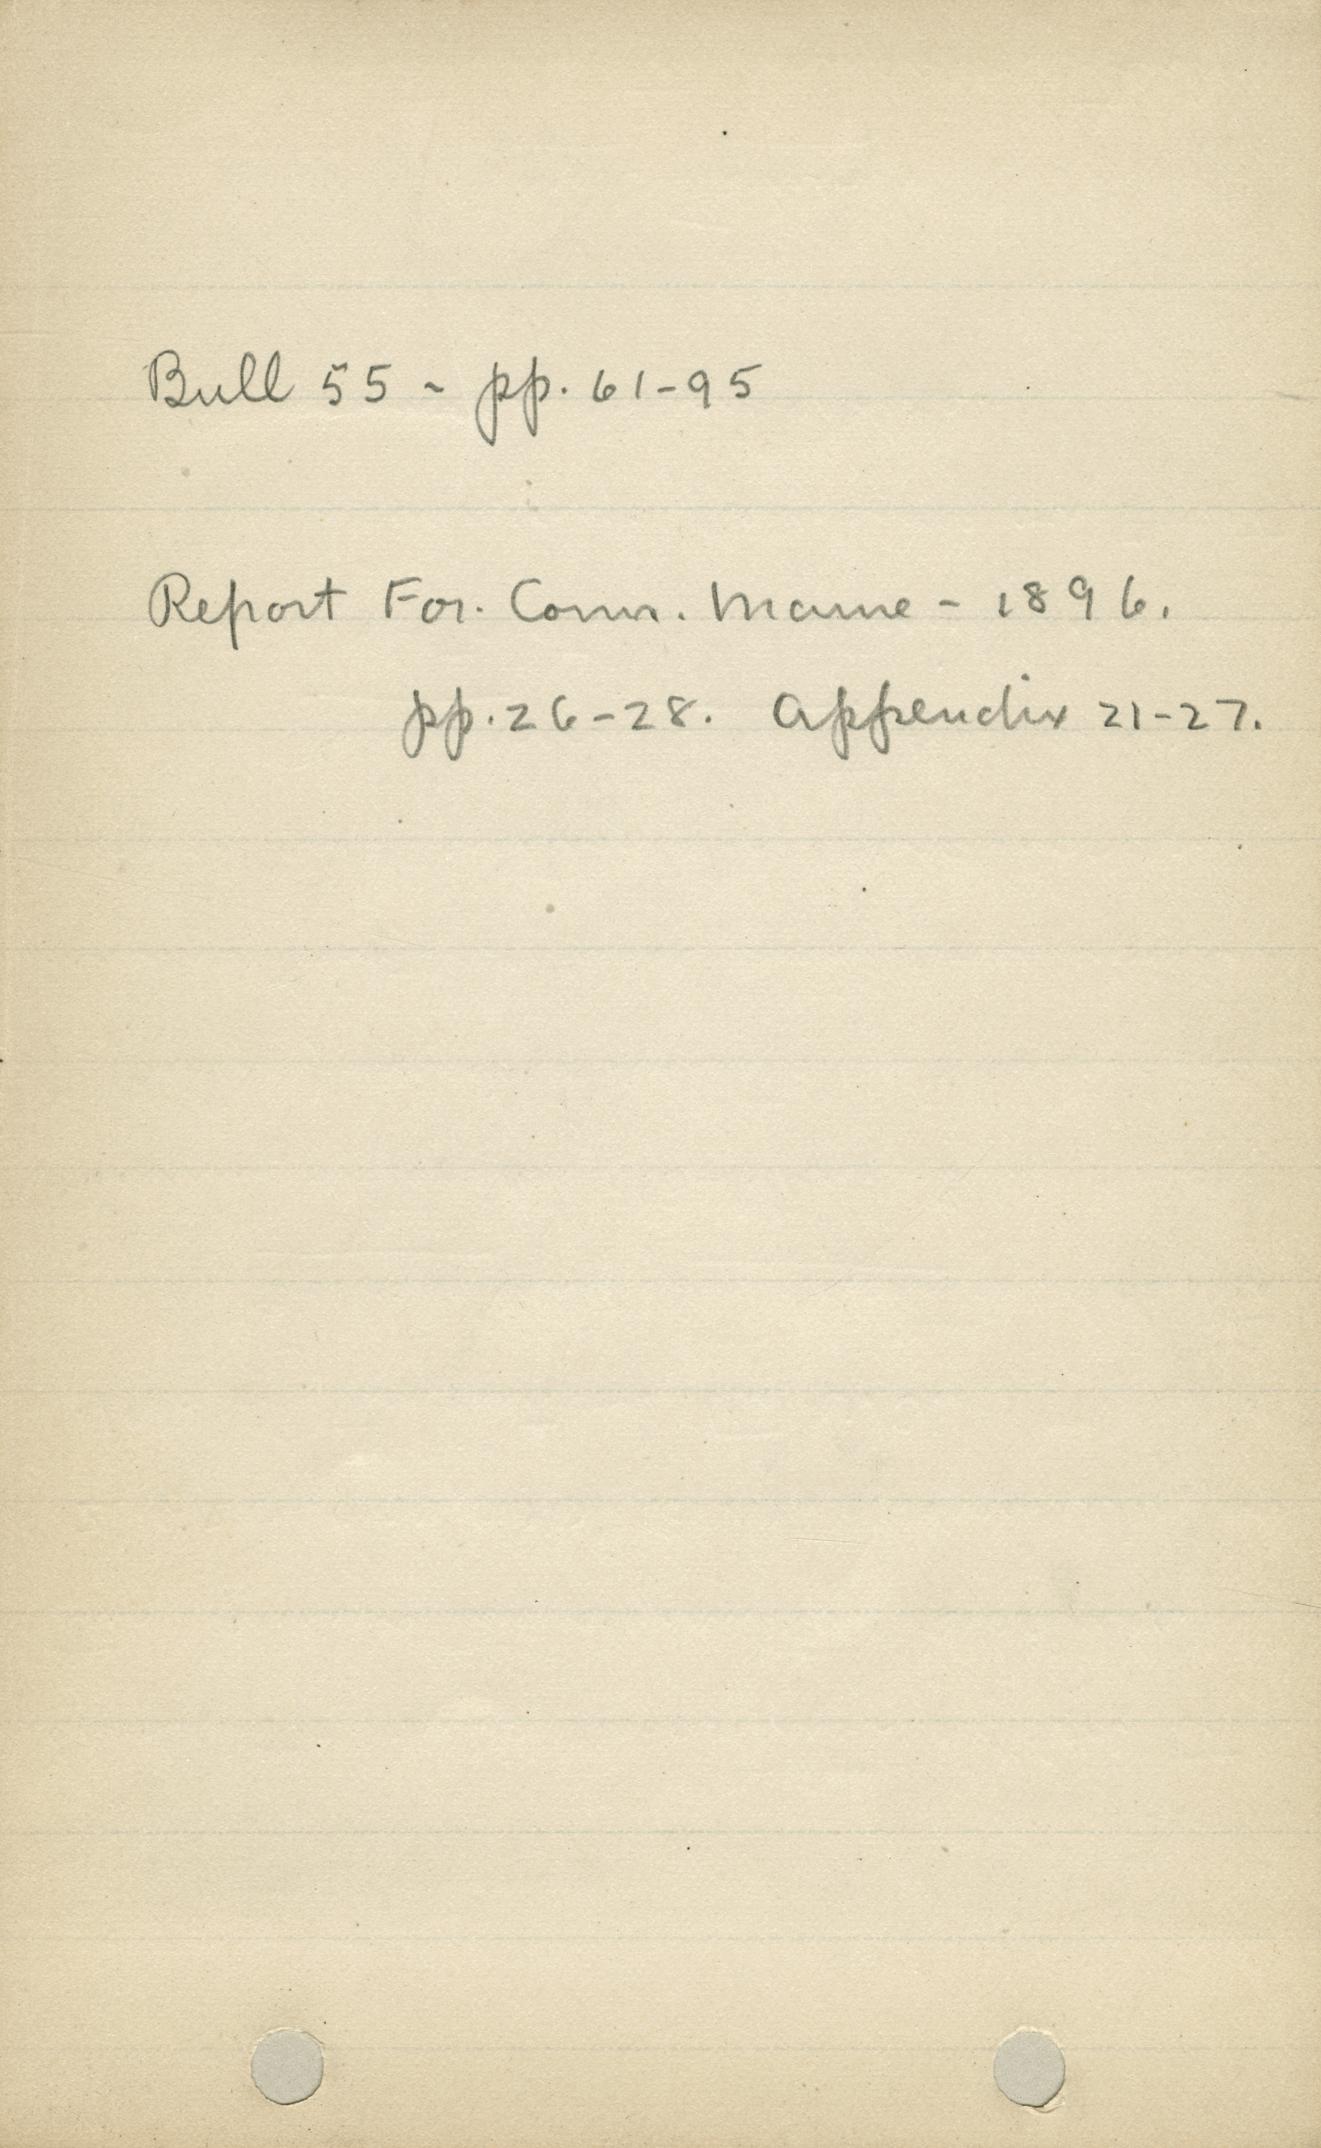 Bull 55 - pp. 61-95
Report For. Comr. Maine - 1896.
pp. 26-28. Appendix 21-27.